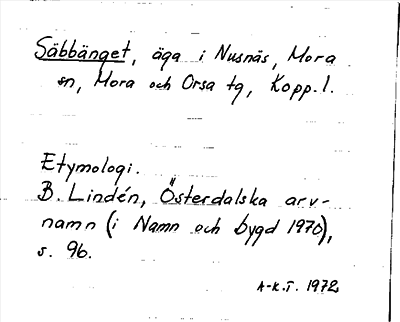 Säbbänget, äga i Nusnäs, Mora
sn, Mora och Orsa tg, Kopp. l.
Etymologi.
B. Lindén, Österdalska arv-
namn (i Namn och bygd 1970),
s. 96.
A-K.T. 1972